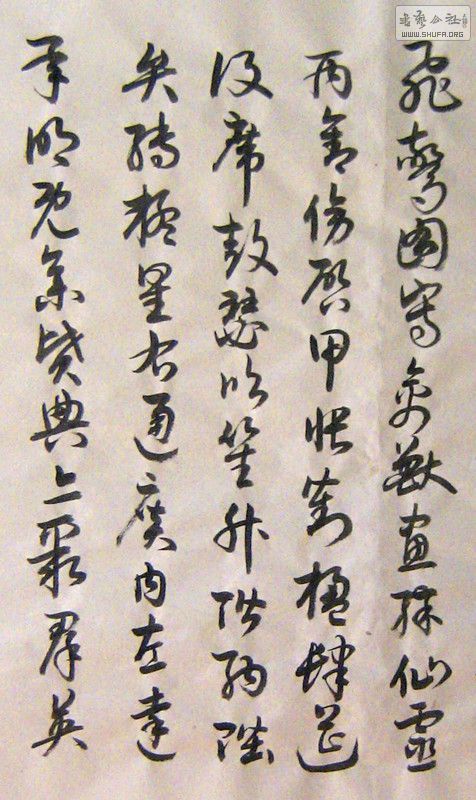 飛驚圖寫禽獸畫彩仙靈
丙舍傍啓甲帳對楹肆筵
設席鼓瑟吹笙升階納陛
弁轉疑星右通廣內左達
承明既集墳典亦聚羣英
書藝公社
WWW.SHUFA.ORG